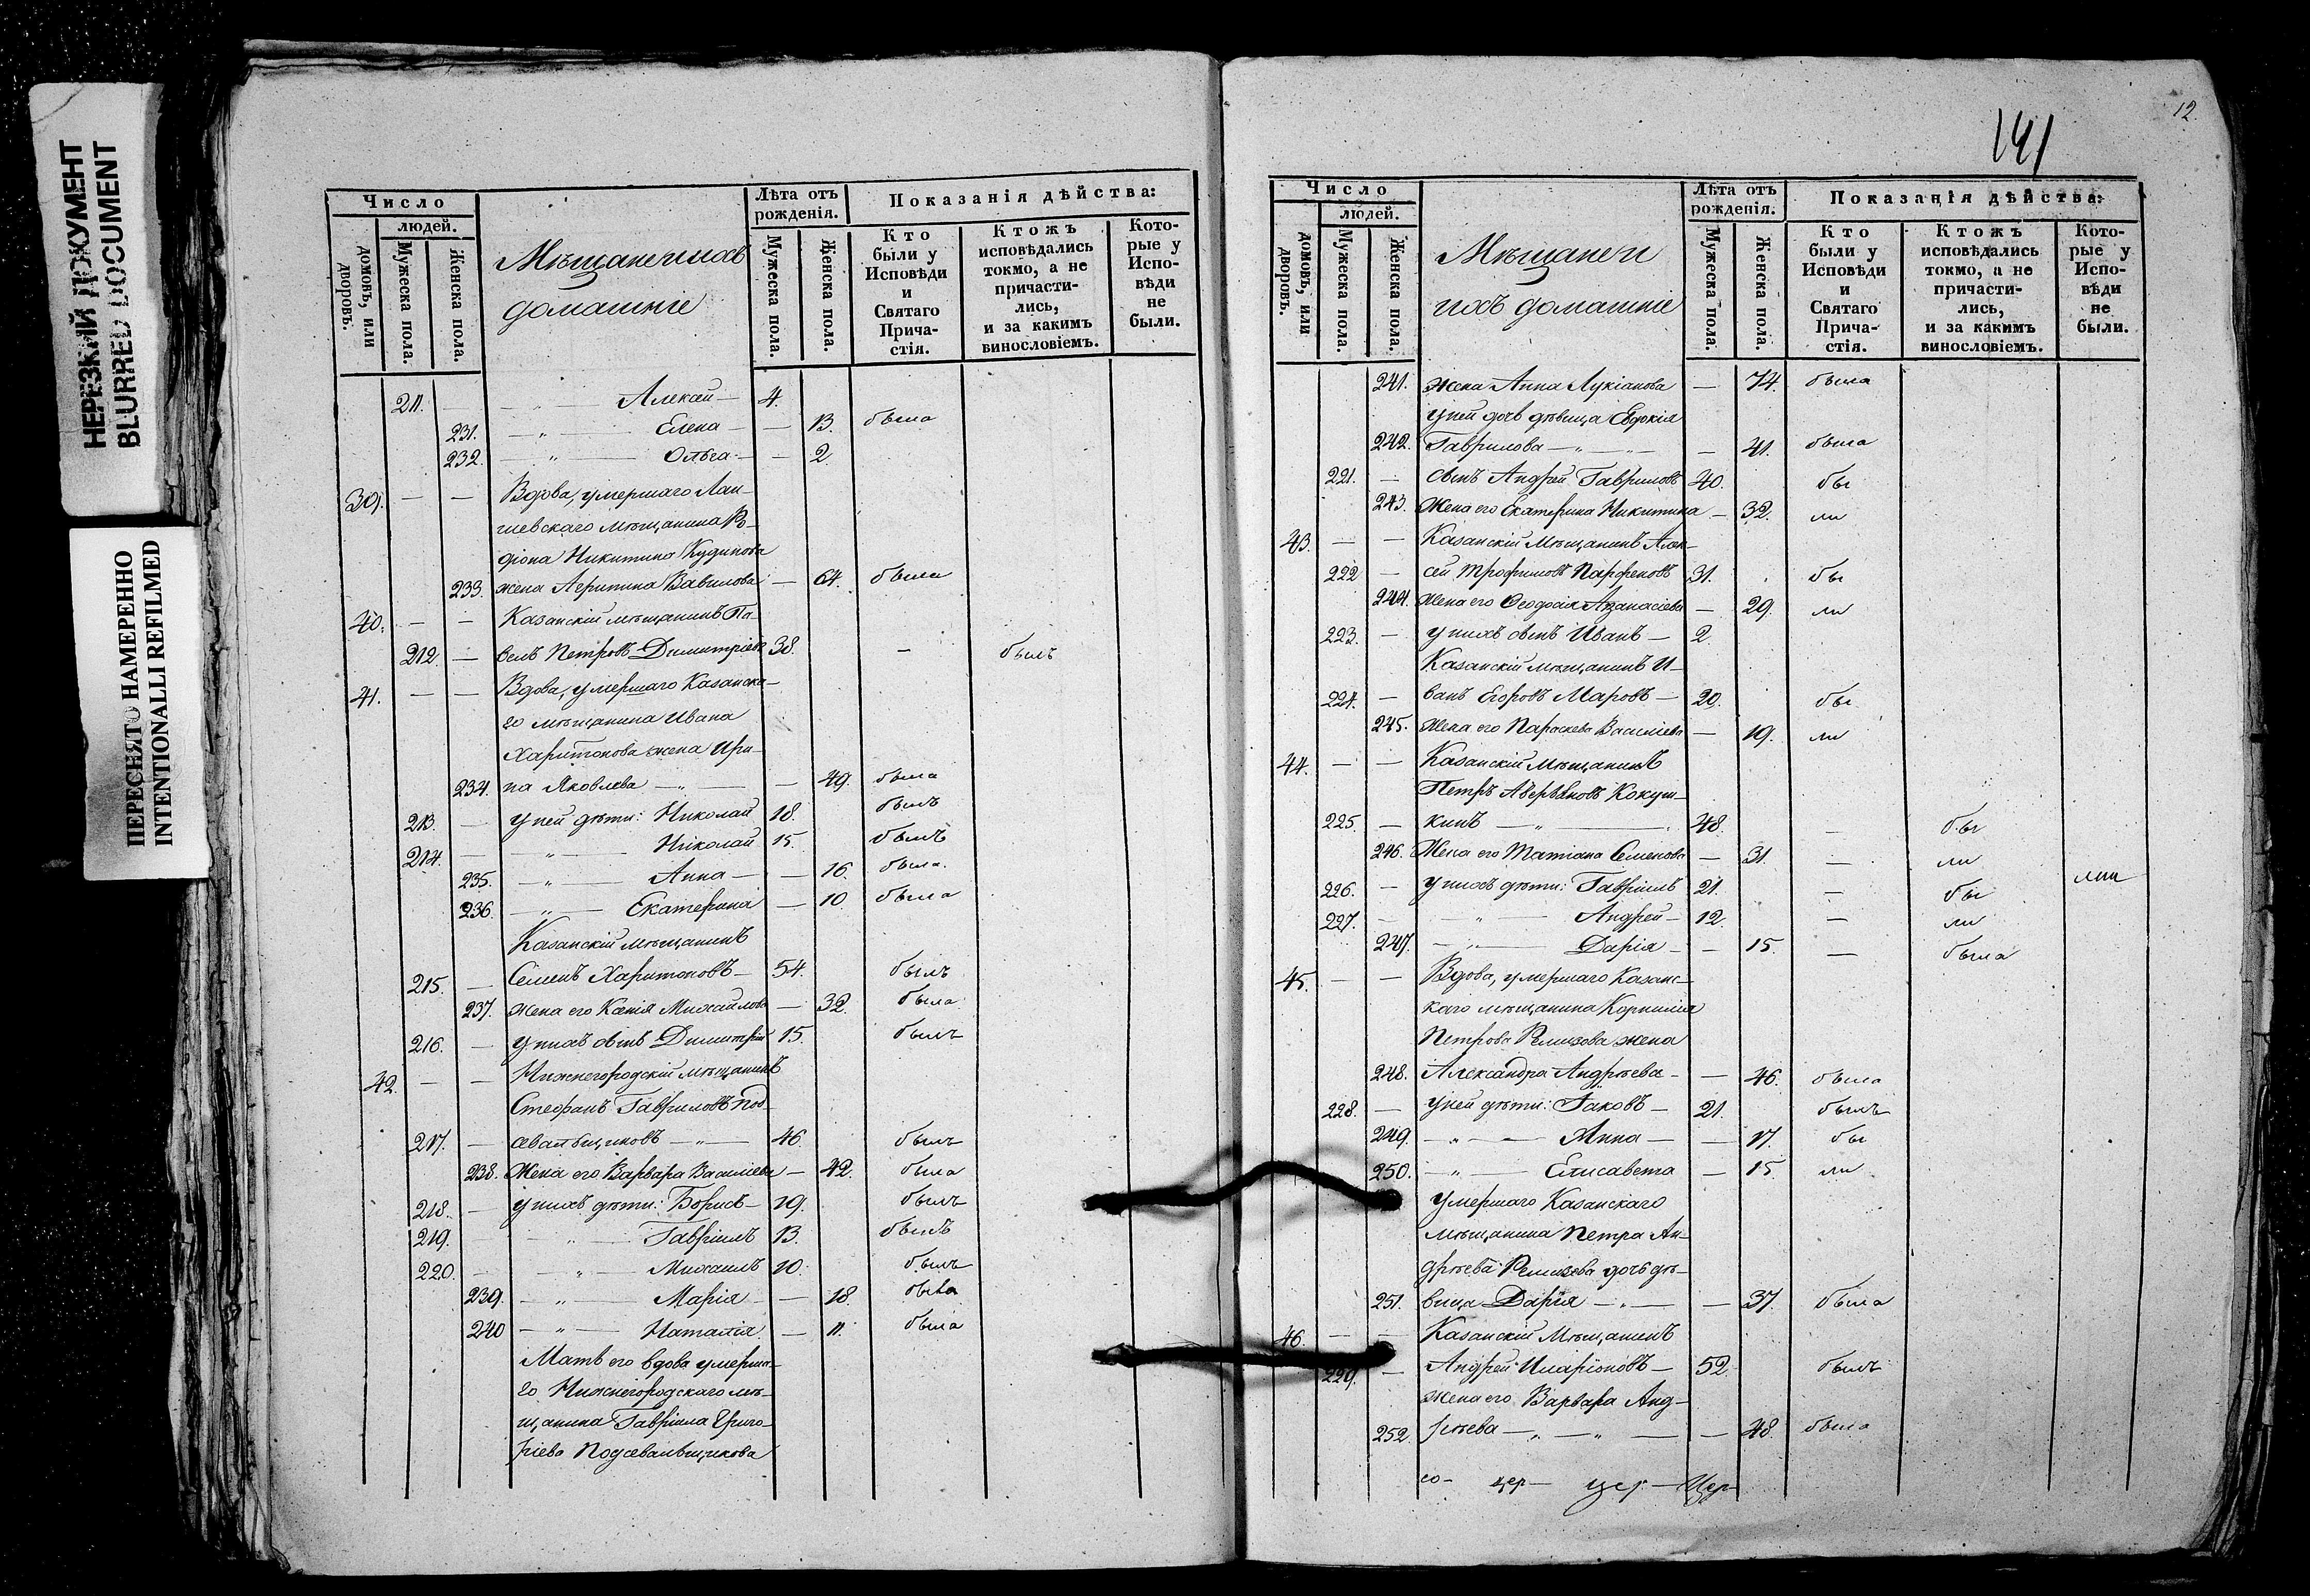 НЕРЕЗКИЙ ДОКУМЕНТ
BLURRED DOCUMENT
ПЕРЕСНЯТО НАМЕРЕННО
INTENTIONALLI REFILMED
Число
людей.
домовъ, или дворовъ.
Мужеска пола.
Женска пола.
Мѣщане и ихъ
домашніе
Лѣта отъ рожденія.
Мужеска пола.
Женска пола.
Показанія дѣйства:
Кто были у Исповѣди и Святаго Прича-стія.
Ктожъ исповѣдались токмо, а не причасти-лись, и за какимъ винословіемъ.
Кото-рые у Испо-вѣди не были.
211. — — „ — Алексѣй — 4.
231. — „ — Елена — — 13. была
232. — „ — Ольга — — 2.
39. — — Вдова, умершаго Лаи-
шевскаго мѣщанина Ро-
діона Никитина Кудинова
233. жена Агрипина Вавилова — 64. была
40. — — Казанскій мѣщанинъ Па-
212. — велъ Петровъ Димитріевъ 38. — былъ
41. — — Вдова, умершаго Казанска-
го мѣщанина Ивана
Харитонова жена Ири-
234. на Яковлева — „ — — 49. была
213. — у ней дѣти: Николай 18. былъ
214. — — „ — Николай 15. былъ
235. — „ — Анна — — 16. была.
236. — „ — Екатерина — 10 была
Казанскій мѣщанинъ
215. — Семенъ Харитоновъ — 54. былъ
237. жена его Ксенія Михайлова — 32. была
216. — у нихъ сынъ Димитрій 15. былъ
42. — — Нижнегородскій мѣщанинъ
Стефанъ Гавриловъ Под-
217. — севальщиковъ — „ — 46. былъ
238. Жена его Варвара Василіева — 42. была
218. — у нихъ дѣти: Борисъ — 19. былъ
219. — „ — Гавріилъ 13. былъ
220. — — „ — Михаилъ 10. былъ
239. — „ — Марія — — 18. была
240 — „ — Наталія — 11. была
Мать его вдова умерша-
го Нижнегородскаго мѣ-
щанина Гавріила Григо-
ріева Подсевальщикова
141
12.
Число
людей.
домовъ, или дворовъ.
Мужеска пола.
Женска пола.
Мѣщане и
ихъ домашніе
Лѣта отъ рожденія.
Мужеска пола.
Женска пола.
Показанія дѣйства:
Кто были у Исповѣди и Святаго Прича-стія.
Ктожъ исповѣдались токмо, а не причасти-лись, и за какимъ винословіемъ.
Кото-рые у Испо-вѣди не были.
241. жена Анна Лукіанова — 74. была
у ней дочь дѣвица Евдокія
242. Гаврилова — „ — „ — — 41. была
221. — сынъ Андрей Гавриловъ 40. бы
243. Жена его Екатерина Никитина — 32. ли
43. — — Казанскій Мѣщанинъ Алек-
222 — сѣй Трофимовъ Парфеновъ 31. бы
244. Жена его Ѳеодосія Аѳанасіева — 29. ли
223. — у нихъ сынъ Иванъ — 2
Казанскій мѣщанинъ И-
224. — ванъ Егоровъ Маровъ — 20. бы
245. Жена его Параскева Василіева — 19. ли
44. — — Казанскій Мѣщанинъ
Петръ Аверьяновъ Кокуш-
225. — кинъ — „ — 48. — бы
246. Жена его Татіана Семенова — 31. — ли
226. — у нихъ дѣти: Гавріилъ 21. — бы
227. — „ — Андрей — 12. — ли
247. — „ — Дарія — — 15. — была
45. — — Вдова, умершаго Казанс-
каго мѣщанина Корнилія
Петрова Ремизова жена
248. Александра Андрѣева — — 46. была
228. — у ней дѣти: Іаковъ — 21. былъ
249. — „ — Анна — — 17. бы
250. — „ — Елисавета — 15 ли
умершаго Казанскаго
мѣщанина Петра Ан-
дрѣева Ремизова дочь дѣ-
251. вица Дарія — „ — — 37. была
46. — — Казанскій Мѣщанинъ
229. — Андрей Иларіоновъ — 52. былъ
Жена его Варвара Анд-
252. рѣева — „ — „ — — 48. была